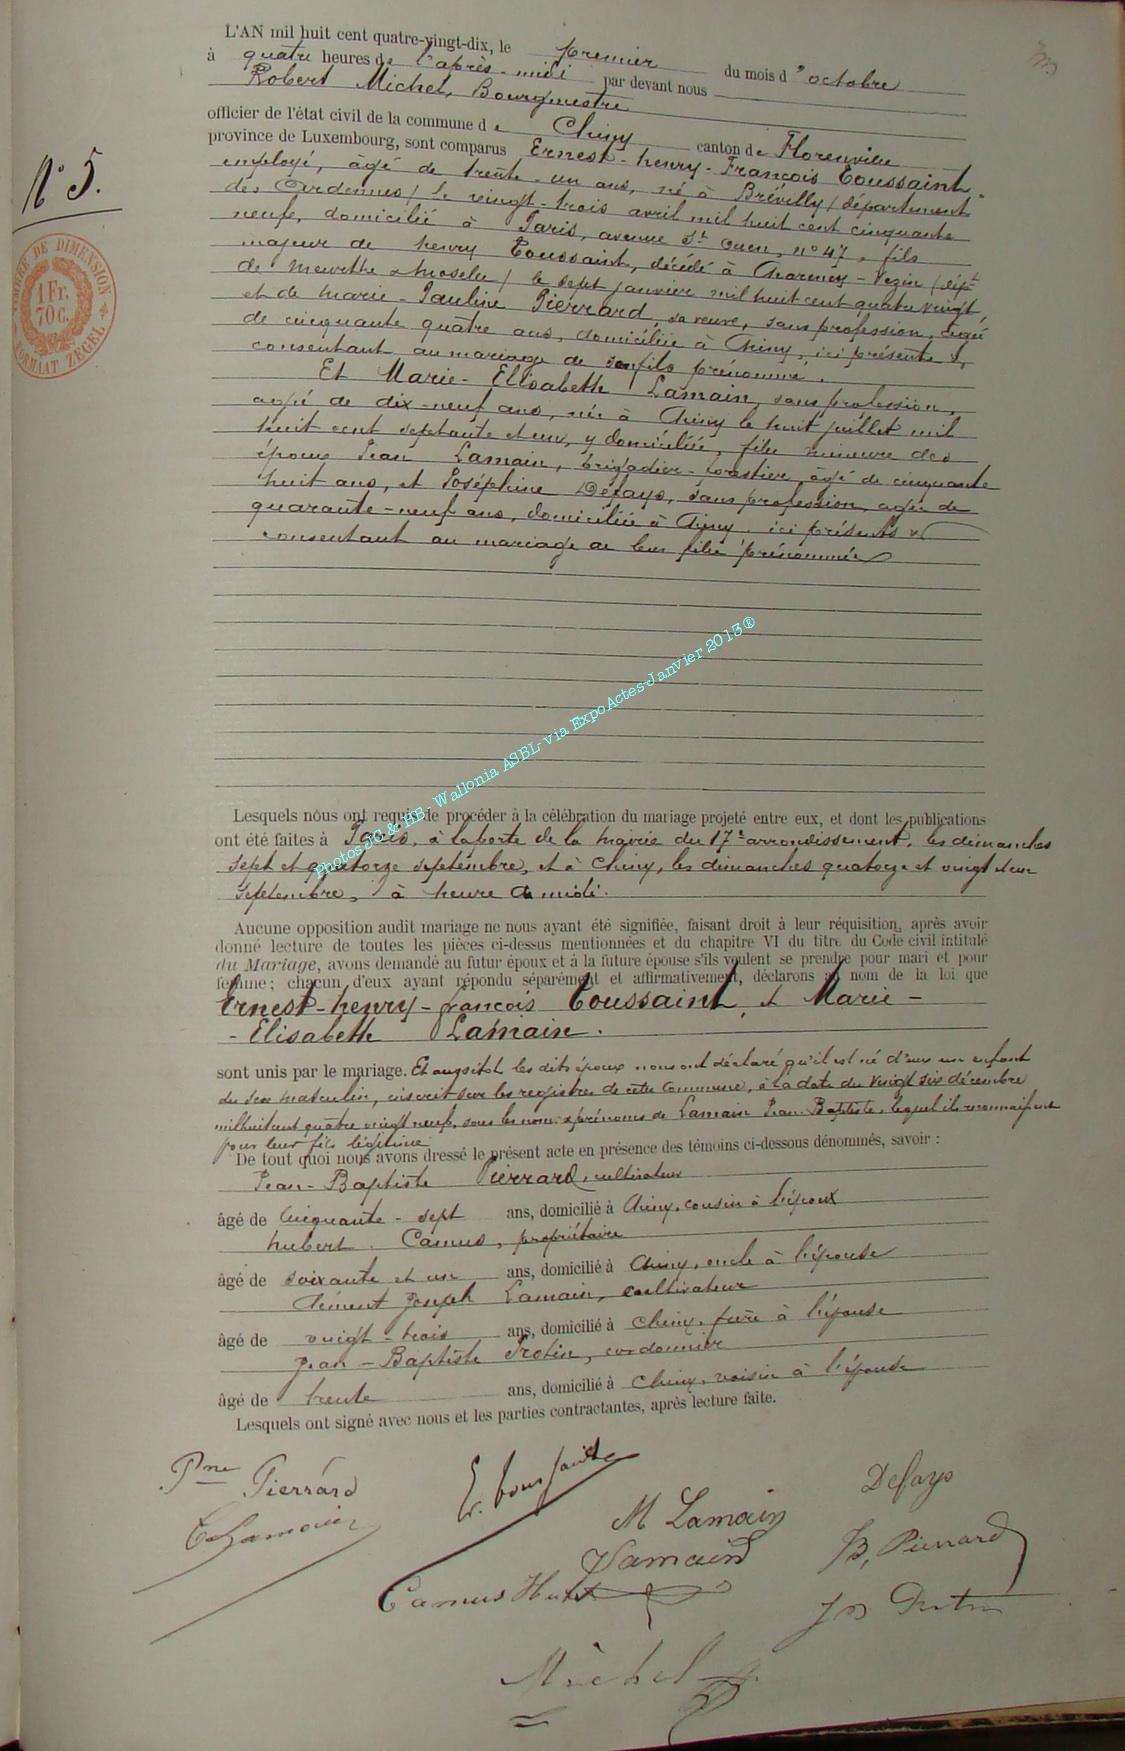 L'AN mil huit cent quatre-vingt-dix, le premier du mois d'octobre
à quatre heures de l'après-midi par devant nous
Robert Michel, Bourgmestre
officier de l'état civil de la commune de Chiny canton de Florenville
province de Luxembourg, sont comparus Ernest-henry-François Toussaint,
employé, âgé de trente-un ans, né à Brévilly (département
des Ardennes) le vingt-trois avril mil huit cent cinquante
neuf, domicilié à Paris, avenue St Ouen, n° 47, fils
majeur de henry Toussaint, décédé à Charency-Vezin (dépt
de meurthe & moselle) le sept janvier mil huit cent quatre vingt,
et de marie-Pauline Pierrard, sa veuve, sans profession, âgée
de cinquante quatre ans, domiciliée à Chiny, ici présente &
consentant au mariage de son fils prénommé.
Et Marie-Elisabeth Lamain, sans profession,
agée de dix-neuf ans, née à Chiny le huit juillet mil
huit cent septante et un, y domiciliée, fille mineure des
époux Jean Lamain, brigadier-forestier, âgé de cinquante
huit ans, et Joséphine Defays, sans profession, agée de
quarante-neuf ans, domiciliée à Chiny, ici présents &
consentant au mariage de leur fille prénommée
N° 5.
TIMBRE DE DIMENSION
1 Fr.
70 C.
FORMAAT ZEGEL
Photos JG & HB - Wallonia ASBL- via ExpoActes-Janvier 2013®
Lesquels nous ont requis de procéder à la célébration du mariage projeté entre eux, et dont les publications
ont été faites à Paris, à la porte de la mairie du 17e arrondissement, les dimanches
sept et quatorze septembre, et à Chiny, les dimanches quatorze et vingt et un
septembre, à heure de midi.
Aucune opposition audit mariage ne nous ayant été signifiée, faisant droit à leur réquisition, après avoir
donné lecture de toutes les pièces ci-dessus mentionnées et du chapitre VI du titre du Code civil intitulé
du Mariage, avons demandé au futur époux et à la future épouse s'ils veulent se prendre pour mari et pour
femme; chacun d'eux ayant répondu séparément et affirmativement, déclarons au nom de la loi que
Ernest-henry-françois Toussaint, et Marie-
-Elisabeth Lamain.
sont unis par le mariage. Et aussitot les dits époux nous ont déclaré qu'il est né d'eux un enfant
du sexe masculin, inscrit sur les registres de cette Commune, à la date du vingt six décembre
mil huit cent quatre vingt neuf, sous les nom & prénoms de Lamain Jean-Baptiste, lequel ils reconnaissent
pour leur fils légitime
De tout quoi nous avons dressé le présent acte en présence des témoins ci-dessous dénommés, savoir :
Jean-Baptiste Pierrard, cultivateur
âgé de cinquante-sept ans, domicilié à Chiny, cousin à l'époux
hubert Camus, propriétaire
âgé de soixante et un ans, domicilié à Chiny, oncle à l'épouse
Clément Joseph Lamain, cultivateur
âgé de vingt-trois ans, domicilié à Chiny, frère à l'épouse
Jean-Baptiste Protin, cordonnier
âgé de trente ans, domicilié à Chiny, voisin à l'épouse
Lesquels ont signé avec nous et les parties contractantes, après lecture faite.
Pne Pierrard
E. Toussaint
Defays
C Lamain
M Lamain
J Lamain
JB, Pierrard
Camus Hubert
JB Protin
Michel